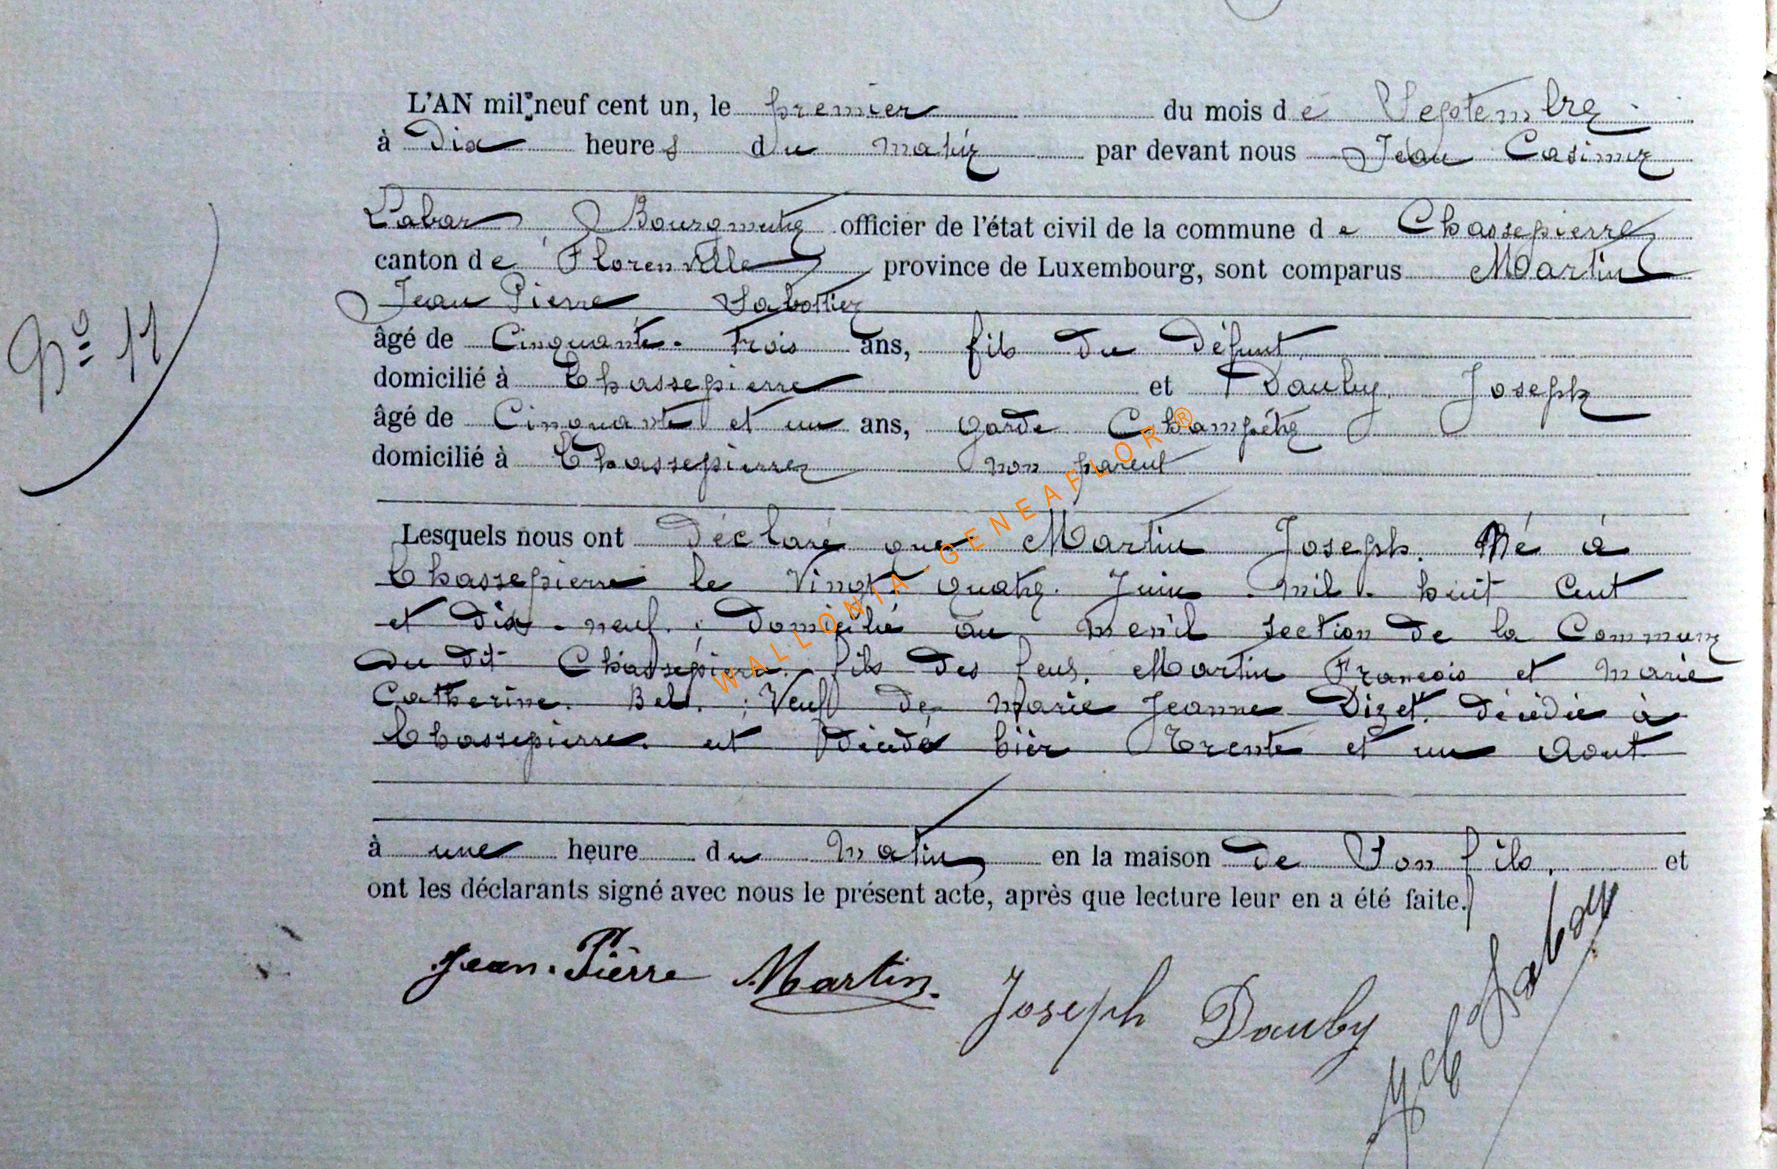 L'AN mil neuf cent un, le premier du mois de Septembre
à Dix heures du matin par devant nous Jean Casimir
Labar, Bourgmestre officier de l'état civil de la commune de Chassepierre
canton de Florenville province de Luxembourg, sont comparus Martin
Jean Pierre Sabottier
N° 11
âgé de Cinquante-Trois ans, fils du Défunt
domicilié à Chassepierre et Dauby Joseph
âgé de Cinquante et un ans, garde Champêtre
domicilié à Chassepierre non parent
Lesquels nous ont Déclaré que Martin Joseph. Né à
Chassepierre le Vingt quatre Juin mil huit Cent
et dix-neuf. Domicilié au menil section de la Commune
du dit Chassepierre. fils des feus. Martin François et Marie
Catherine. ; Veuf de Marie Jeanne Dizet. décédée à
Chassepierre. est décédé hier Trente et un Aout
à une heure du Matin en la maison de Son fils, et
ont les déclarants signé avec nous le présent acte, après que lecture leur en a été faite.
Jean-Pierre Martin.
Joseph Dauby
J C Labar
WALLONIA-GENEAFLOR®